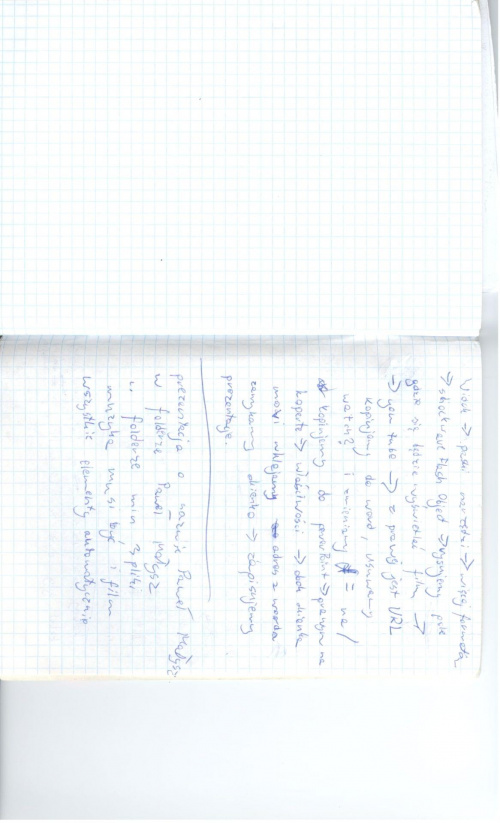 Widok → pasek narzędzi → więcej formantów
→ shockwave Flash Object → rysujemy pole
gdzie się będzie wyświetlał film →
→ you tube → z prawej jest URL
kopiujemy do word, usuwamy
watch? i zamieniamy = na /
kopiujemy do powerPoint → prawym na
kopercie → właściwości → obok okienka
movi wklejamy adres z worda
zamykamy okienko → zapisujemy
prezentację.
prezentacja o nazwie Paweł Małysz
w folderze Paweł Małysz
w folderze min 3 pliki
muzyka musi być i film
wszystkie elementy automatycznie